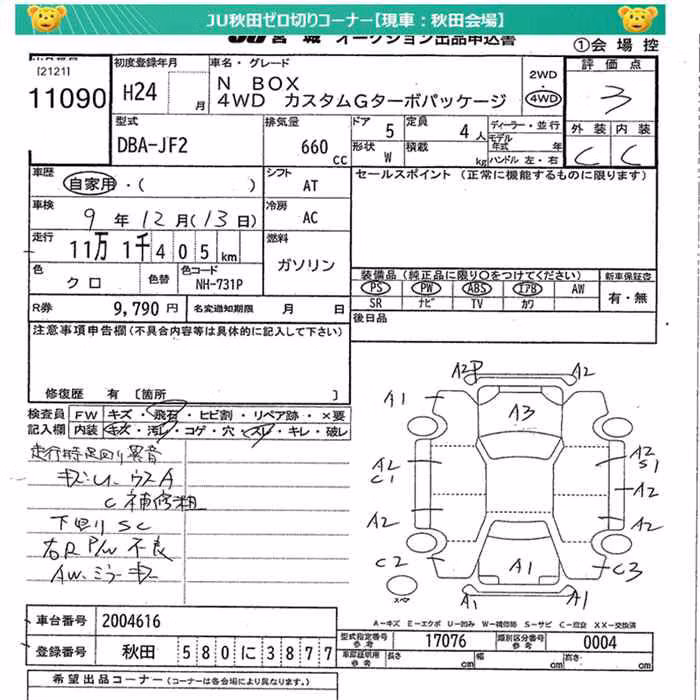 JU秋田ゼロ切りコーナー【現車：秋田会場】
JU宮城 オークション出品申込書
①会場控
[2121]
11090
初度登録年月
H24 月
車名・グレード
N BOX
4WD カスタムGターボパッケージ
2WD
・
4WD
評価点
3
外装 内装
C C
型式
DBA-JF2
排気量
660 cc
ドア 5
定員 4 人
形状 W
積載 kg
ディーラー・並行
モデル年式 年
ハンドル 左・右
車歴
自家用・( )
シフト
AT
セールスポイント (正常に機能するものに限ります)
車検
9 年 12 月(13日)
冷房
AC
走行
11万 1千 4 0 5 km
燃料
ガソリン
色
クロ
色替
色コード
NH-731P
装備品 (純正品に限り○をつけてください)
新車保証書
PS PW ABS エアB AW
有・無
SR ナビ TV カワ
R券 9,790 円
名変通知期限 月 日
後日品
注意事項申告欄(不具合内容等は具体的に記入して下さい)
修復歴 有 [箇所 ]
検査員 FW キズ・飛石・ヒビ割・リペア跡・×要
記入欄 内装 キズ・汚レ・コゲ・穴・スレ・キレ・破レ
走行時足回り異音
キズU、ウスA
C補修粗
下回りSC
右R P/W 不良
AW、ミラーキズ
A2P A2
A1 A3 A2
A2 C1
A2 S1
A2
A2 A2
C2 A1 C3
スペア
A1 A1
A－キズ E－エクボ U－凹み W－補修跡 S－サビ C－腐食 XX－交換済
車台番号 2004616
登録番号 秋田 580 に 3877
型式指定番号 参考 17076
類別区分番号 参考 0004
車庫証明用 参考
長さ cm 幅 cm 高さ cm
希望出品コーナー (コーナーは各会場により異なります。)